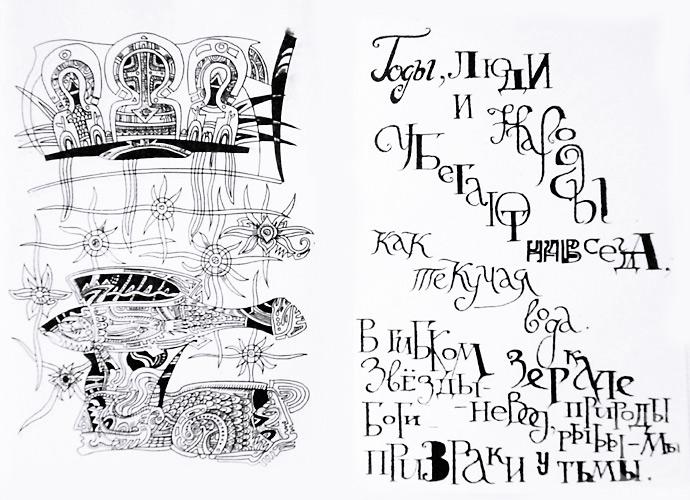 Годы, люди
и народы
убегают
навсегда,
как
текучая
вода.
В гибком
зеркале
природы
Звёзды-
-невод,
рыбы-мы
Боги-
призраки у тьмы.